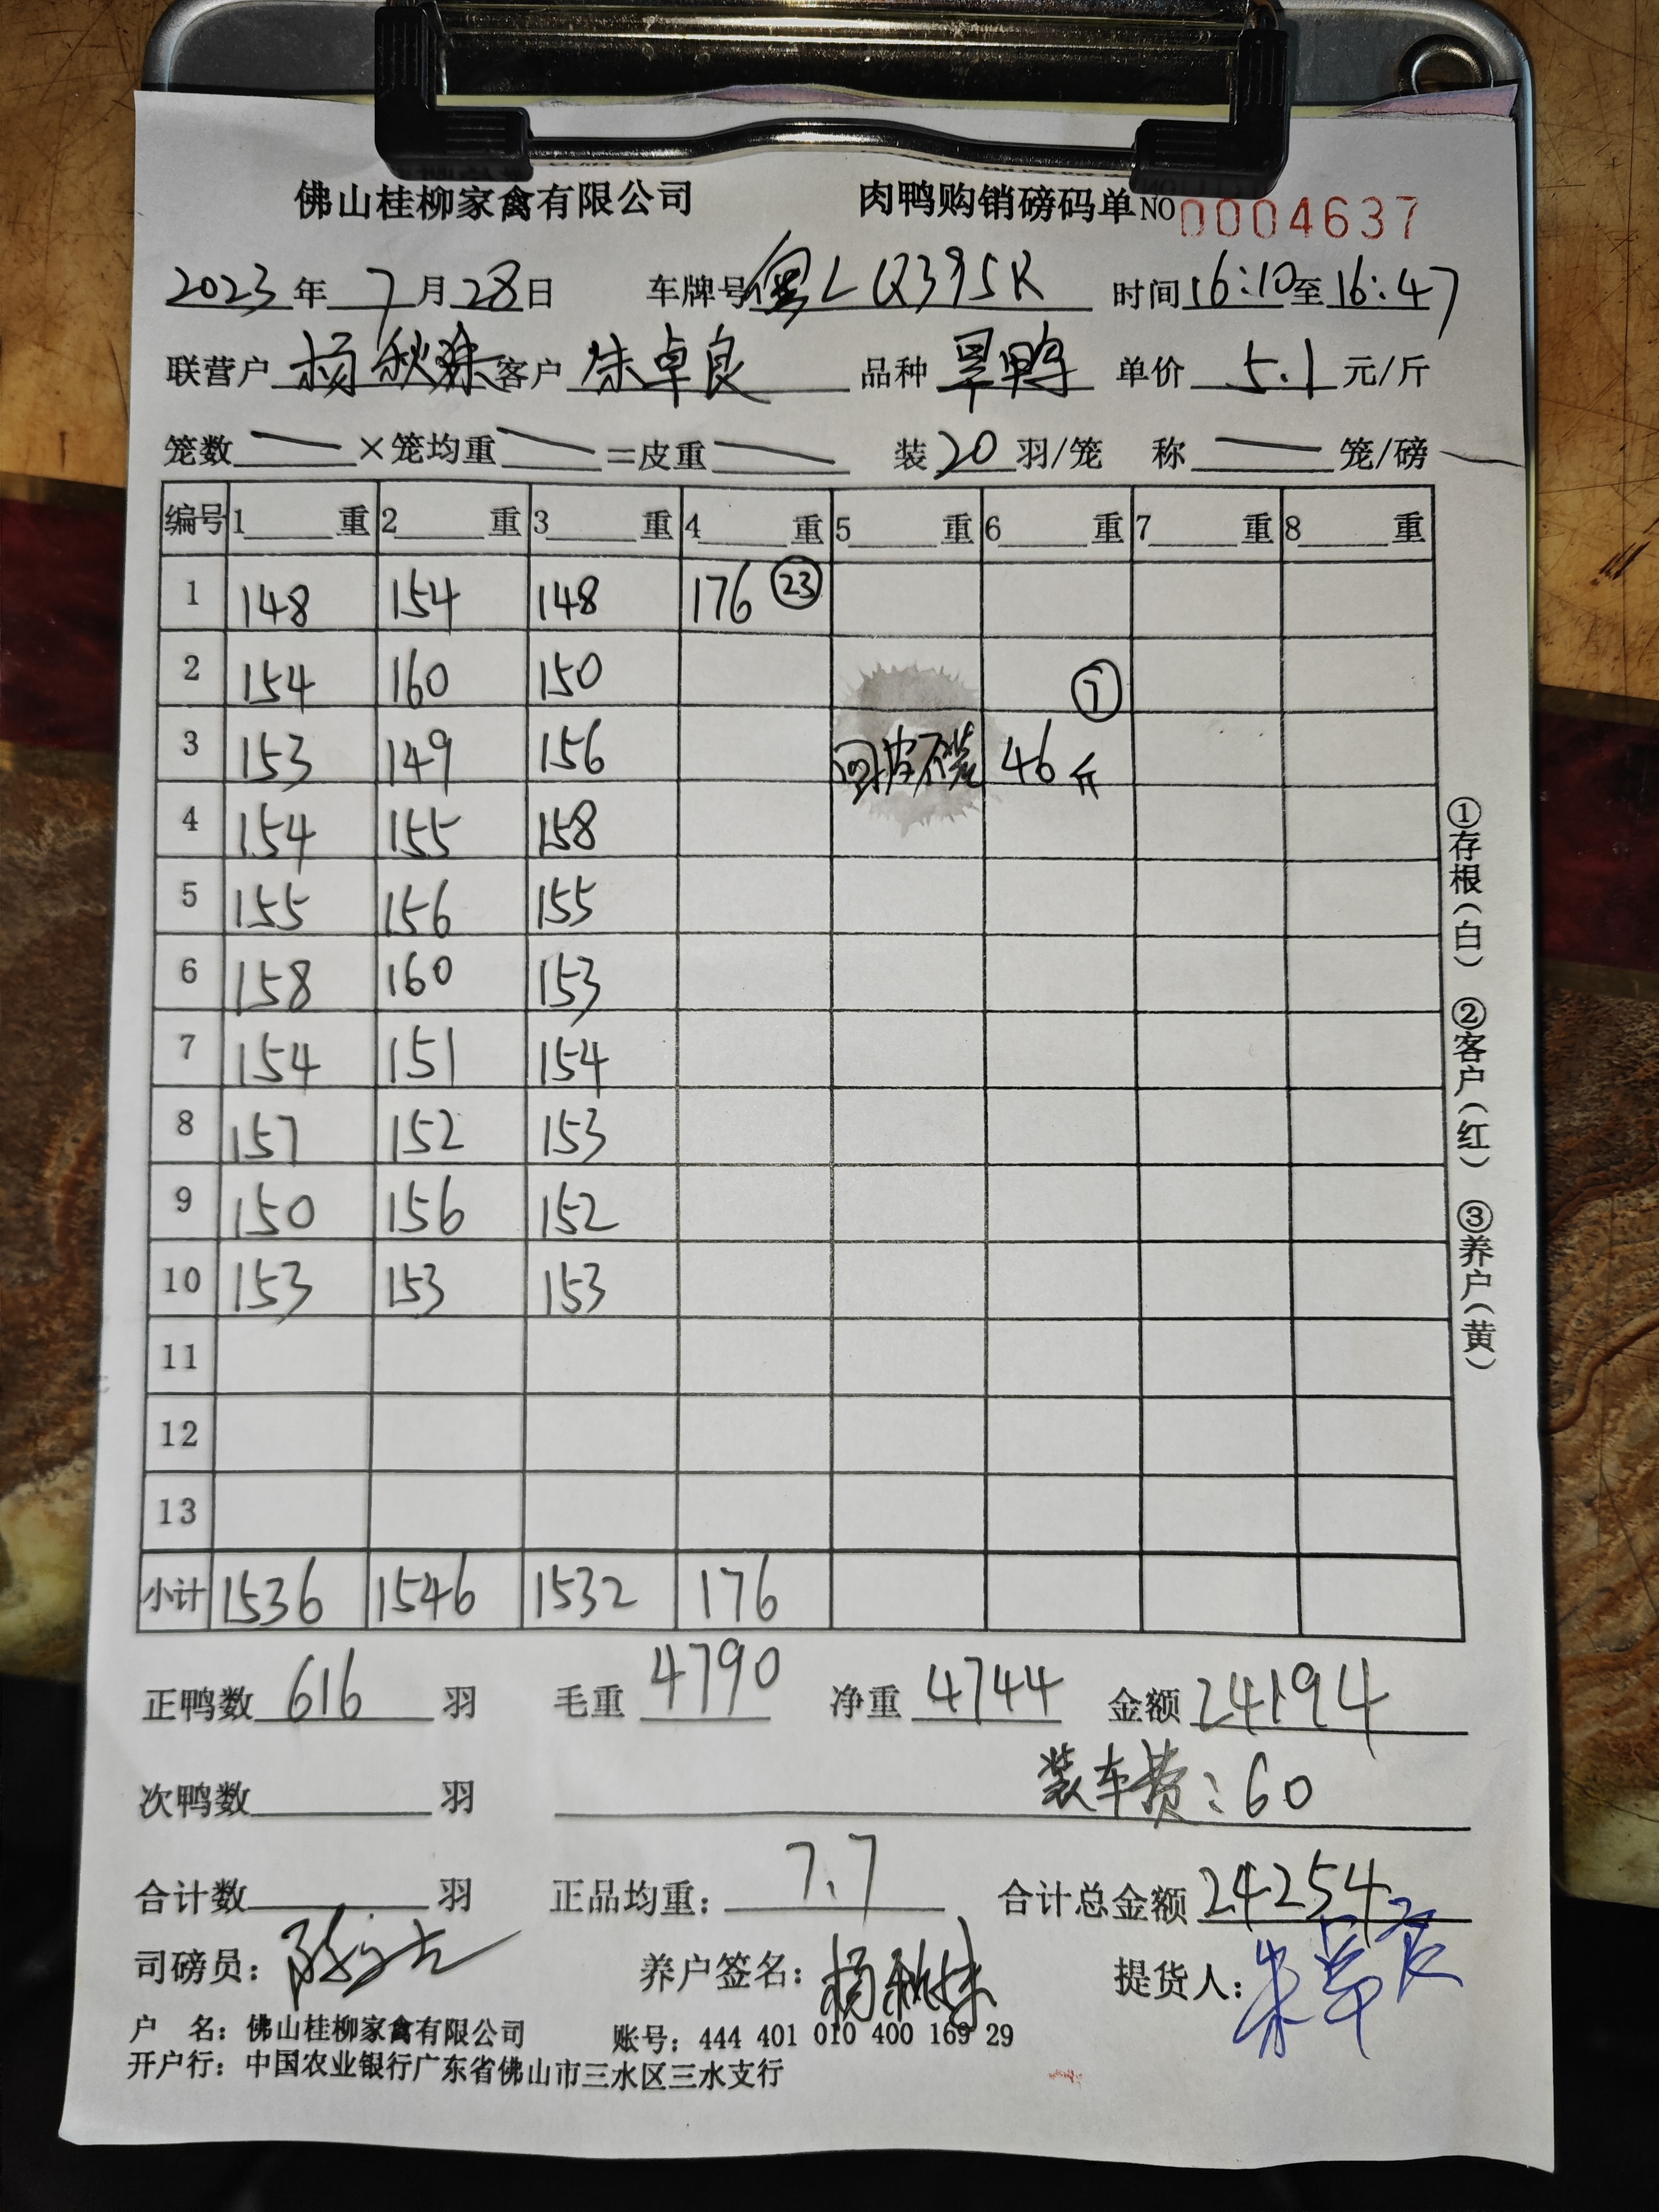 佛山桂柳家禽有限公司 肉鸭购销磅码单 NO 0004637
2023年 7月 28日 车牌号 粤L Q395K 时间 16:10 至 16:47
联营户 杨秋 客户 朱卓良 品种 旱鸭 单价 5.1 元/斤
笼数 — ×笼均重 — =皮重 — 装 20 羽/笼 称 — 笼/磅
编号 1 重 2 重 3 重 4 重 5 重 6 重 7 重 8 重
1 148 154 148 176 ㉓
2 154 160 150 ①
3 153 149 156 回皮不装 46斤
4 154 155 158
5 155 156 155
6 158 160 153
7 154 151 154
8 157 152 153
9 150 156 152
10 153 153 153
11
12
13
小计 1536 1546 1532 176
正鸭数 616 羽 毛重 4790 净重 4744 金额 24194
次鸭数 羽 装车费:60
合计数 羽 正品均重: 7.7 合计总金额 24254
司磅员: 养户签名: 杨秋 提货人: 朱卓良
户 名: 佛山桂柳家禽有限公司 账号: 444 401 010 400 169 29
开户行: 中国农业银行广东省佛山市三水区三水支行
①存根(白) ②客户(红) ③养户(黄)